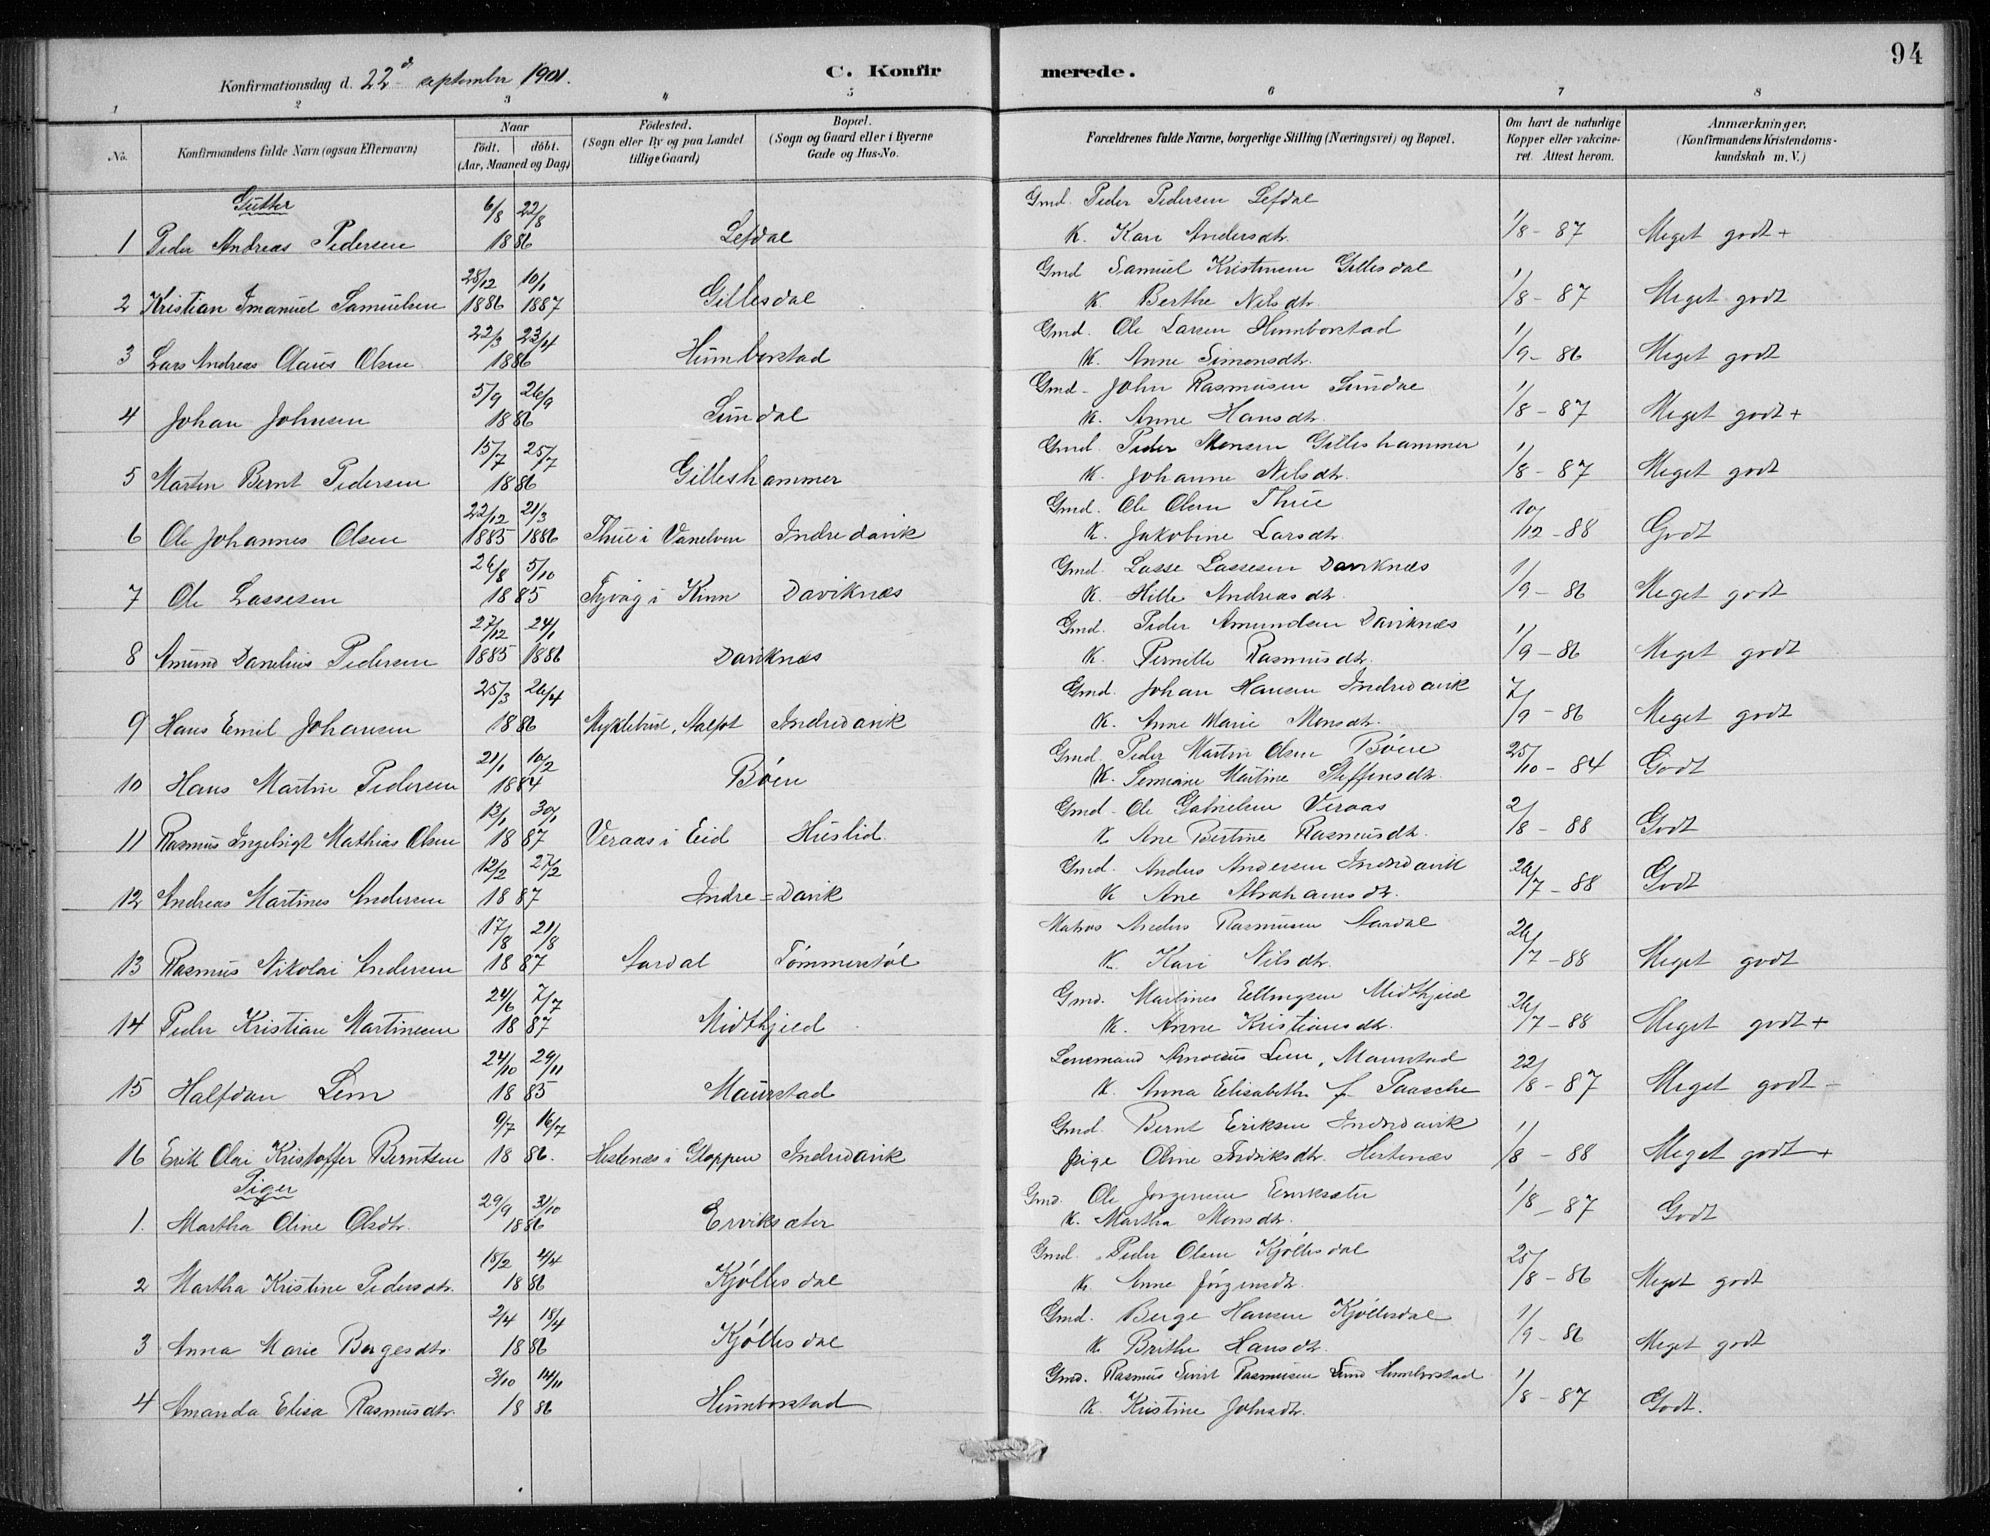 94
Konfirmationsdag d. 22d september 1901.
C. Konfirmerede.
1 2 3 4 5 6 7 8
No.
Konfirmandens fulde Navn (ogsaa Efternavn)
Naar født. døbt. (Aar, Maaned og Dag)
Fødested. (Sogn eller By og paa Landet tillige Gaard)
Bopæl. (Sogn og Gaard eller i Byerne Gade og Hus-No.
Forældrenes fulde Navne, borgerlige Stilling (Næringsvei) og Bopæl.
Om havt de naturlige Kopper eller vakcineret. Attest herom.
Anmærkninger. (Konfirmandens Kristendomskundskab m. V.)
Gutter
1 Peder Andreas Pedersen 6/8 22/8 1886 Lefdal Gmd. Peder Pedersen Lefdal
K. Kari Andersdtr. 1/8-87 Meget godt+
2 Kristian Imanuel Samuelsen 28/12 1886 10/1 1887 Gillesdal Gmd Samuel Kristensen Gillesdal
K Berthe Nilsdtr. 1/8-87 Meget godt
3 Lars Andreas Olaus Olsen 22/3 23/4 1886 Humborstad Gmd. Ole Larsen Humborstad
K. Anne Simonsdtr. 1/9-86 Meget godt
4 Johan Johnsen 5/9 26/9 1886 Sundal Gmd- John Rasmusen Sundal
K. Anne Hansdtr. 1/8-87 Meget godt+
5 Martin Bernt Pedersen 15/7 25/7 1886 Gilleshammer Gmd. Peder Monsen Gilleshammer
K. Johanne Nilsdtr. 1/8-87 Meget godt
6 Ole Johannes Olsen 22/12 1885 21/3 1886 Thue i Vanelven Indredavik Gmd. Ole Olsen Thue
K. Jakobine Larsdtr. 10/12-88 Godt
7 Ole Lassesen 26/8 5/10 1885 i Kinn Daviknæs Gmd. Lasse Lassesen Daviknæs
K. Hille Andreasdtr. 1/9-86 Meget godt
8 Amund Danelius Pedersen 27/12 1885 24/1 1886 Daviknæs Gmd. Peder Amundsen Daviknæs
K. Pernille Rasmusdtr. 1/9-86 Meget godt
9 Hans Emil Johansen 25/3 26/4 1886 Myklebust, Aalfot Indredavik Gmd. Johan Hansen Indredavik
K. Anne Marie Monsdtr. 7/9-86 Meget godt
10 Hans Martin Pedersen 21/1 10/2 1884 Bøen Gmd Peder Martin Olsen Bøen
K. Martine Steffensdtr. 25/10-84 Godt
11 Rasmus Ingebrigt Mathias Olsen 13/1 30/1 1887 Veraas i Eid Huslid. Gmd- Ole Gabrielsen Veraas
K Ane Bertine Rasmusdtr. 2/8-88 Godt
12 Andreas Martines Andersen 12/2 27/2 1887 Indre=Davik Gmd. Anders Andersen Indredavik
K Ane Abrahamsdtr. 26/7-88 Godt
13 Rasmus Nikolai Andersen 17/8 21/8 1887 Aardal Tømmerstøl Matros Anders Rasmusen Aardal
K. Kari Nilsdtr. 26/7-88 Meget godt
14 Peder Kristian Martinesen 24/6 7/7 1887 Midthjeld Gmd. Martines Ellingsen Midthjeld
K. Anne Kristiansdtr. 26/7-88 Meget godt+
15 Halfdan Lem 24/10 29/11 1885 Maurstad Lensmand Lem, Maurstad
K. Anna Elisabeth f. Paasche 22/8-87 Meget godt-
16 Erik Olai Kristoffer Berntsen 9/7 16/7 1886. Hestenæs i Gloppen Indredavik Gmd. Bernt Eriksen Indredavik
Pige Oline Fredriksdtr. Hestenæs 1/8-88 Meget godt+
Piger
1. Martha Oline Olsdtr. 29/9 31/10 1886 Erviksæter Gmd. Ole Jørgensen Erviksæter
K. Martha Monsdtr. 1/8-87 Godt
2 Martha Kristine Pedersdtr. 15/2 4/4 1886 Kjøllesdal Gmd. Peder Olsen Kjøllesdal
K. Anne Jørgensdtr. 25/8-86 Meget godt
3 Anna Marie Bergesdtr. 2/4 18/4 1886 Kjøllesdal Gmd. Berge Hansen Kjøllesdal
K Brithe Hansdtr. 1/9-86 Meget godt
4 Amanda Elisa Rasmusdtr. 3/10 14/11 1886 Humborstad Gmd. Rasmus Sivert Rasmusen Humborstad
K. Kristine Johnsdtr. 1/8-87 Godt.